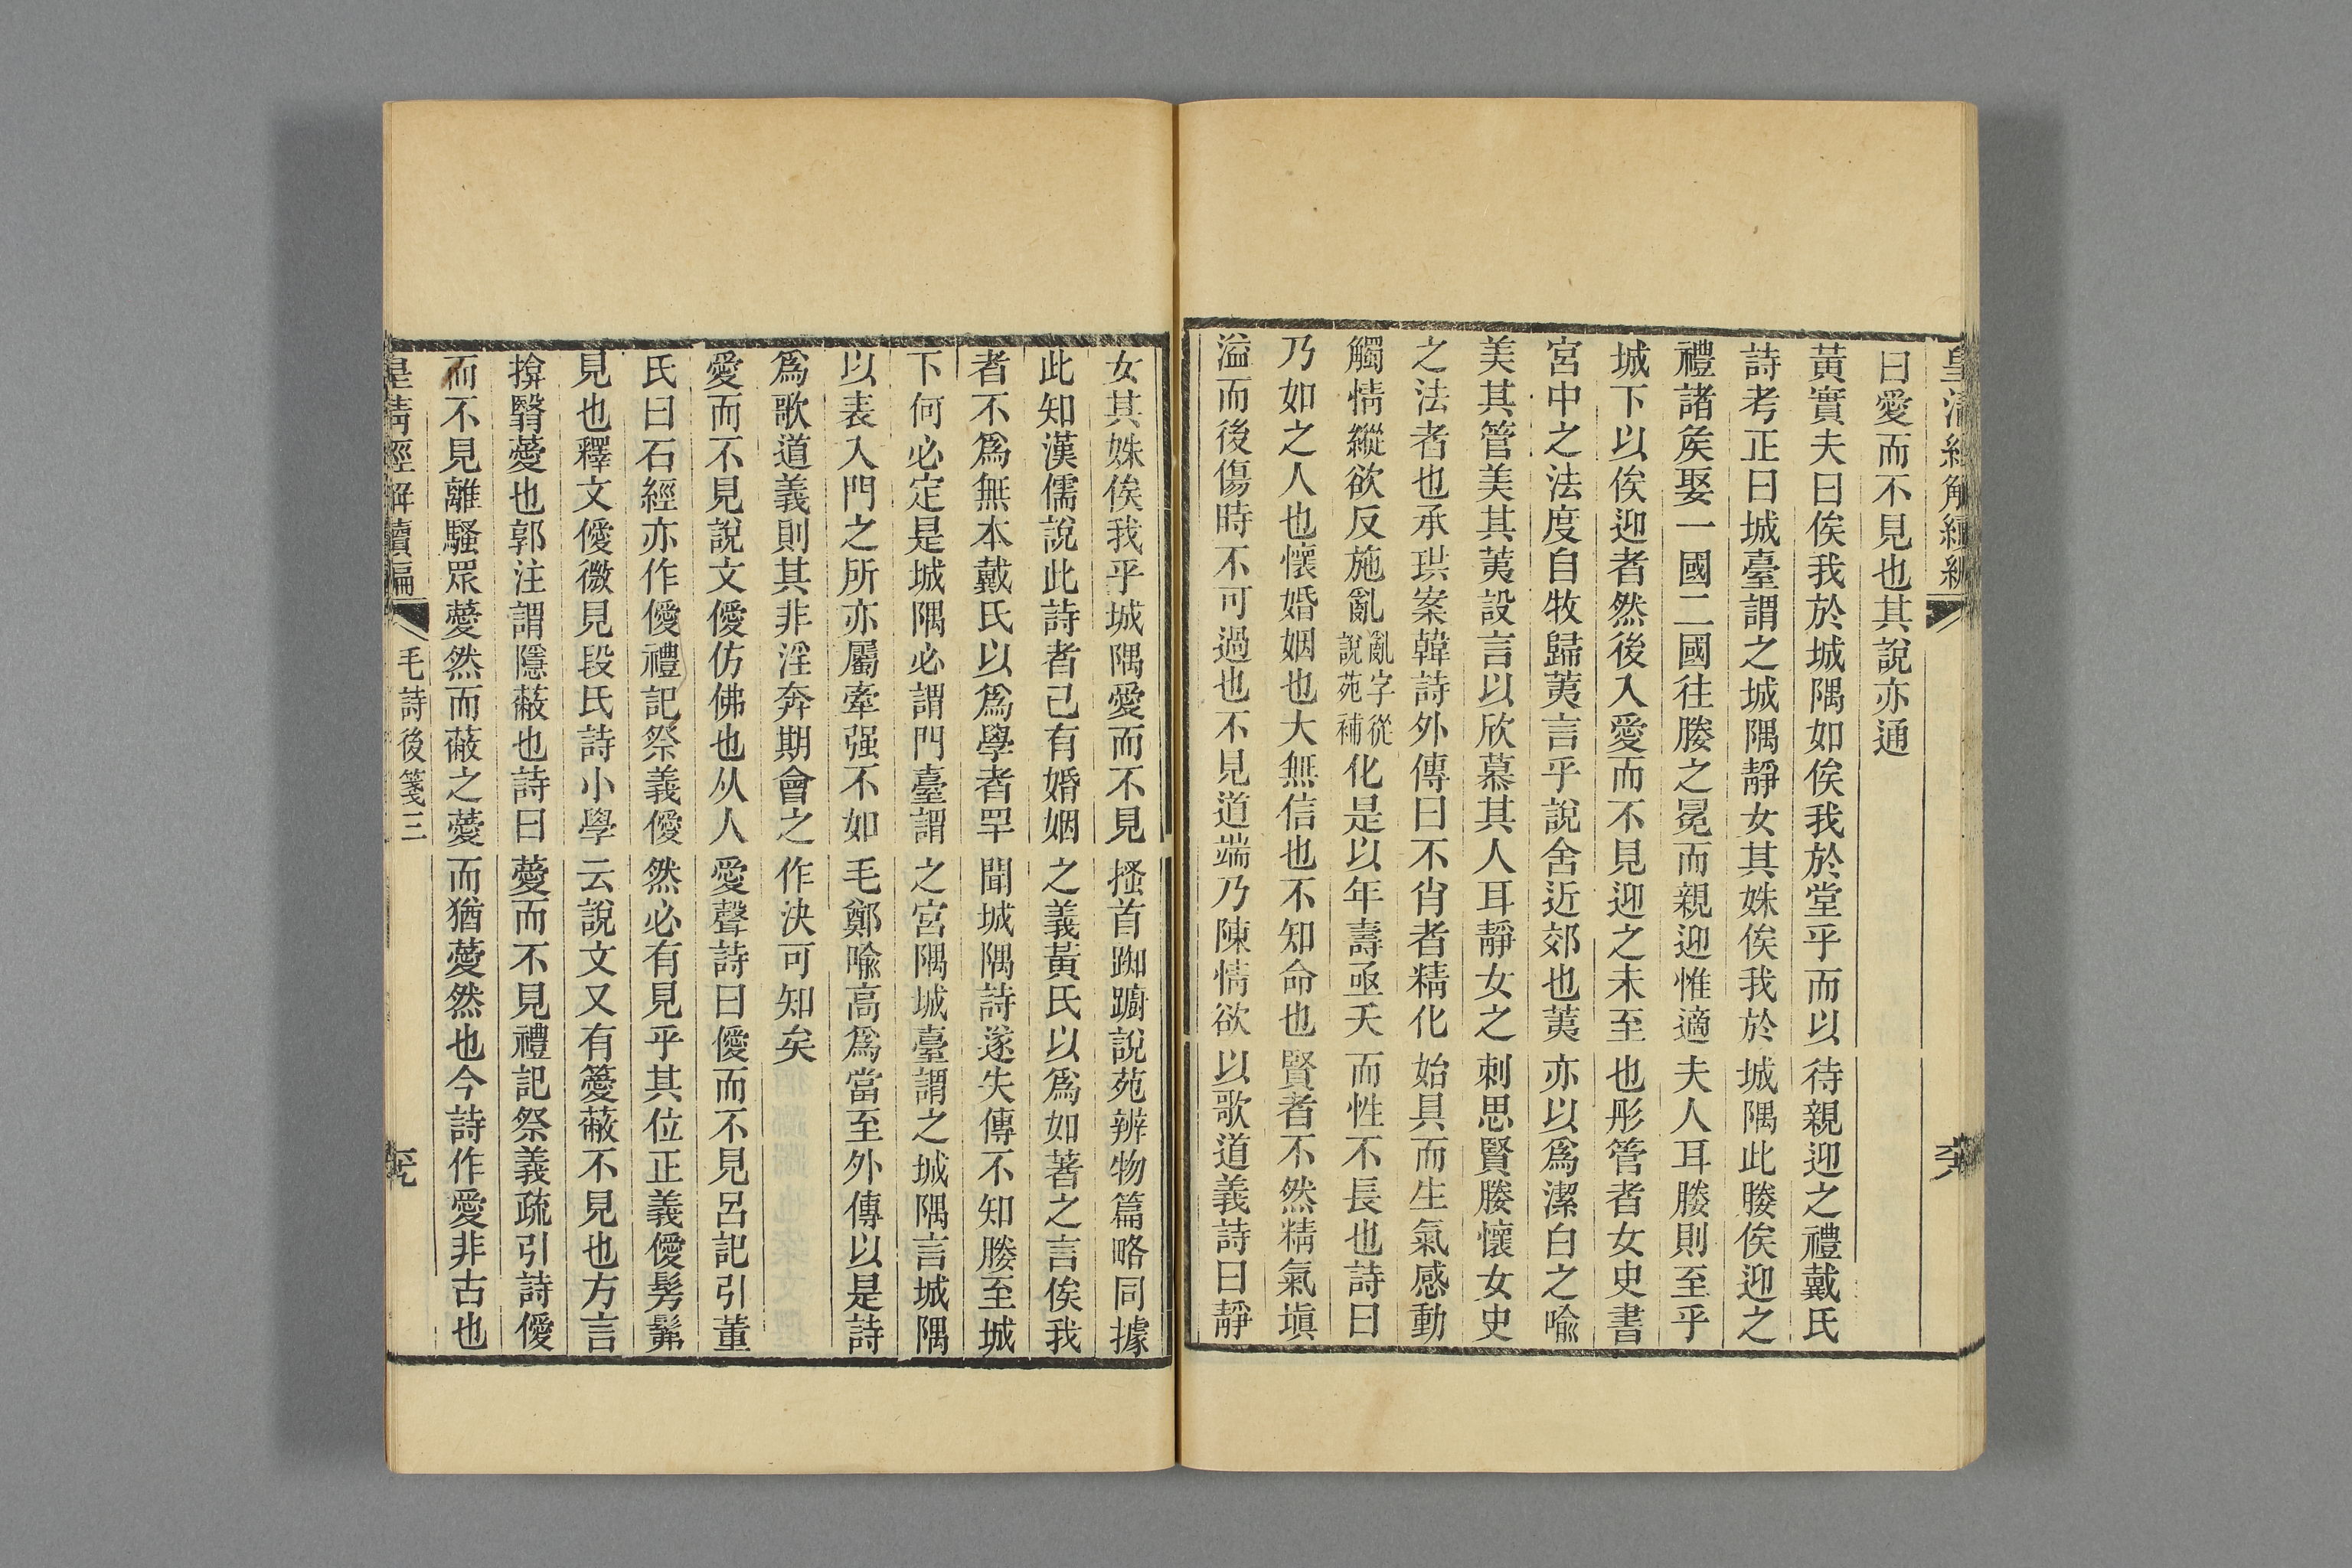 曰愛而不見也其說亦通
黃實夫曰俟我於城隅如俟我於堂乎而以待親迎之禮戴氏
詩考正曰城臺謂之城隅靜女其姝俟我於城隅此媵俟迎之
禮諸矦娶一國二國往媵之冕而親迎惟適夫人耳媵則至乎
城下以俟迎者然後入愛而不見迎之未至也彤管者女史書
宮中之法度自牧歸荑言乎說舍近郊也荑亦以爲潔白之喩
美其管美其荑設言以欣慕其人耳靜女之刺思賢媵懷女史
之法者也承珙案韓詩外傳曰不肖者精化始具而生氣感動
觸情縱欲反施亂亂字從說苑補化是以年壽亟夭而性不長也詩曰
乃如之人也懷婚姻也大無信也不知命也賢者不然精氣塡
溢而後傷時不可過也不見道端乃陳情欲以歌道義詩曰靜
女其姝俟我乎城隅愛而不見搔首踟躕說苑辨物篇略同據
此知漢儒說此詩者已有婚姻之義黃氏以爲如著之言俟我
者不爲無本戴氏以爲學者罕聞城隅詩遂失傳不知媵至城
下何必定是城隅必謂門臺謂之宮隅城臺謂之城隅言城隅
以表入門之所亦屬牽强不如毛鄭喩高爲當至外傳以是詩
爲歌道義則其非淫奔期會之作決可知矣
愛而不見說文僾仿佛也从人愛聲詩曰僾而不見呂記引董
氏曰石經亦作僾禮記祭義僾然必有見乎其位正義僾髣髴
見也釋文僾微見段氏詩小學云說文又有薆蔽不見也方言
揜翳薆也郭注謂隱蔽也詩曰薆而不見禮記祭義疏引詩僾
而不見離騷眾薆然而蔽之薆而猶薆然也今詩作愛非古也
皇淸經解續編
毛詩後箋三